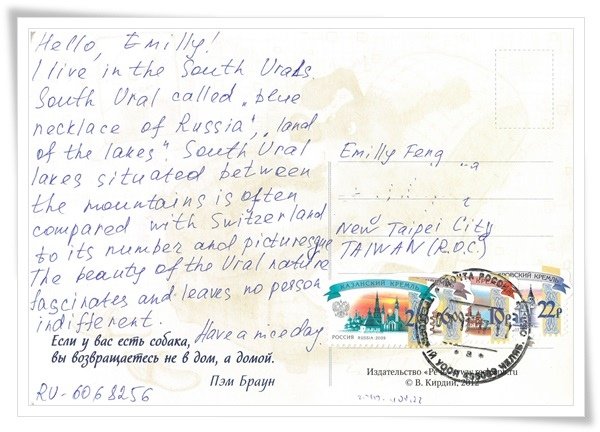 Hello, Emilly!
I live in the South Urals.
South Ural called „blue
necklace of Russia", „land
of the lakes". South Ural
lakes situated between
the mountains is often
compared with Switzerland
to its number and picturesque
The beauty of the Ural nature
fascinates and leaves no person
indifferent.
Have a nice day.
Если у вас есть собака,
вы возвращаетесь не в дом, а домой.
Пэм Браун
RU-6068256
Emilly Feng
New Taipei City
TAIWAN (R.O.C.)
КАЗАНСКИЙ КРЕМЛЬ
РОССИЯ RUSSIA 2009
ПОЧТА РОССИИ
10р
22р
Издательство
© В. Кирдий, 2012